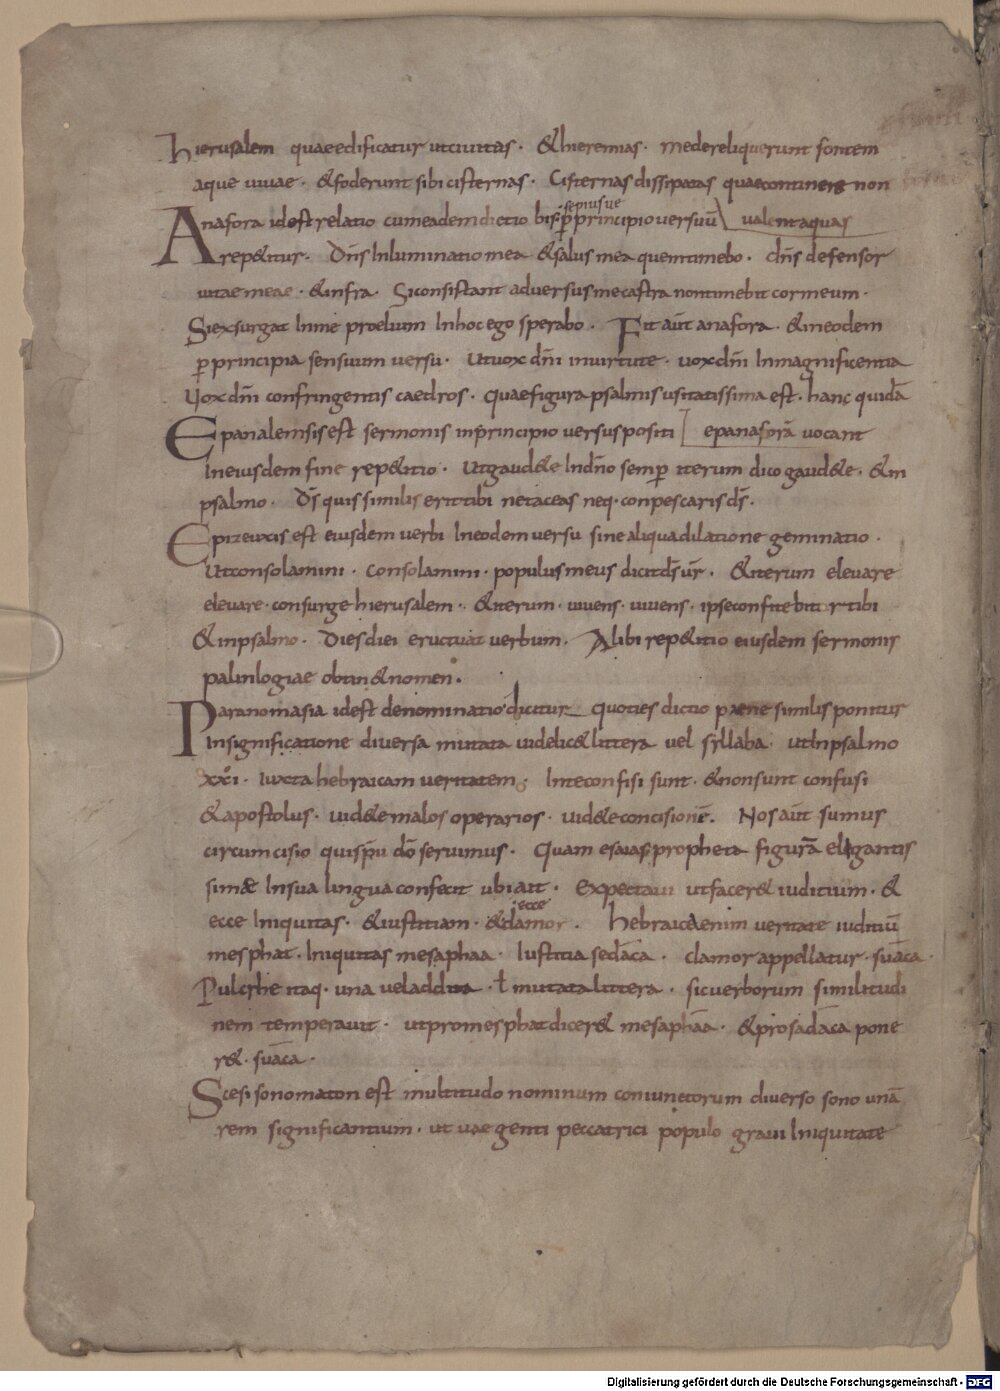 hierusalem quaeedificatur utciuitas · & hieremias · medereliquerunt fontem
aque uiuae · & foderunt sibi cisternas · Cisternas dissipatas quaecontinere non
Anafora idest relatio cumeademdictio bis sepiusue p principio uersuū valent aquas
rep&itur · Dn̄s Inluminatio mea & salus mea quemtimebo · dn̄s defensor
uitae meae · & infra · Siconsistant aduersus me castra nontimebit cor meum ·
Siexsurgat Inme proelium Inhoc ego sperabo · Fit aūt anafora · & ineodem
p principia sensuum uersu · Utuox dn̄i inuirtute · uox dn̄i Inmagnificentia
Uox dn̄i confringentis caedros · quaefigura psalmis usitatissima est · hanc quidā
Epanalemsis est sermonis inprincipio uersus positi epanaforā uocant
Ineiusdem fine rep&itio · Utgaud&e Indn̄o semp iterum dico gaud&e · & in
psalmo · Ds̄ quis similis erit tibi netaceas neq · conpescaris ds̄ ·
Epizeuxis est eiusdem uerbi Ineodem uersu sine aliqua dilatione geminatio ·
Utconsolamini · Consolamini · populus meus dicit ds̄ ur̄ · & iterum eleuare
eleuare · consurge hierusalem · & iterum · uiuens · uiuens · ipse confitebitur tibi
& inpsalmo · Dies diei eructuat uerbum · Alibi rep&itio eiusdem sermonis
palinlogiae obtin& nomen ·
Paranomasia idest denominatio dicitur quoties dictio paene similis ponitur
Insignificatione diuersa mutata uidelic& littera uel syllaba · utInpsalmo
xxi · Iuxta hebraicam ueritatem · Inte confisi sunt · & non sunt confusi
& apostolus · uid&e malos operarios · uid&e concisionē · Nos aūt sumus
circumcisio qui sp̄u do̅ seruimus · Quam esaias propheta figurā elegantis
simae Insua lingua confecit ubi ait · Expectaui utfacer& iuditium · &
ecce Iniquitas · & iustitiam · & ecce clamor · hebraicaenim ueritate iuditiū
mesphat · Iniquitas mesaphaa · Iustitia sedaca · clamor appellatur · suaca
Pulcrhe itaq · una uel addita · ł mutata littera · sic uerborum similitudi
nem temperauit · ut pro mesphat dicer& mesaphaa · & pro sadaca pone
r& · suaca ·
Scesis onomaton est multitudo nominum coniunctorum diuerso sono unā
rem significantium · ut uae genti peccatrici populo graui Iniquitate
Digitalisierung gefördert durch die Deutsche Forschungsgemeinschaft - DFG